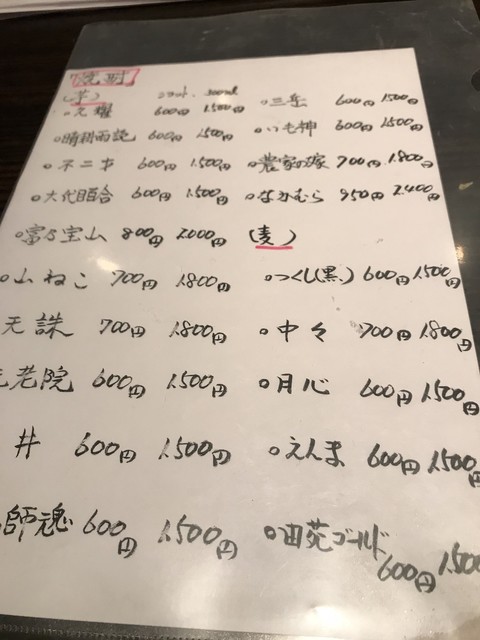 焼酎
(芋)
ショット. 300ml
600円 1,500円
○晴耕雨読 600円 1,500円
○不二才 600円 1,500円
○大代百合 600円 1,500円
○富乃宝山 800円 2,000円
○山ねこ 700円 1,800円
天誅 700円 1,800円
元老院 600円 1,500円
井 600円 1,500円
師魂 600円 1,500円
○三岳 600円 1,500円
600円 1,500円
○農家の嫁 700円 1,800円
○なかむら 950円 2,400円
(麦)
○つくし(黒) 600円 1,500円
○中々 700円 1,800円
○月心 600円 1,500円
○えんま 600円 1,500円
ゴールド
600円 1,500